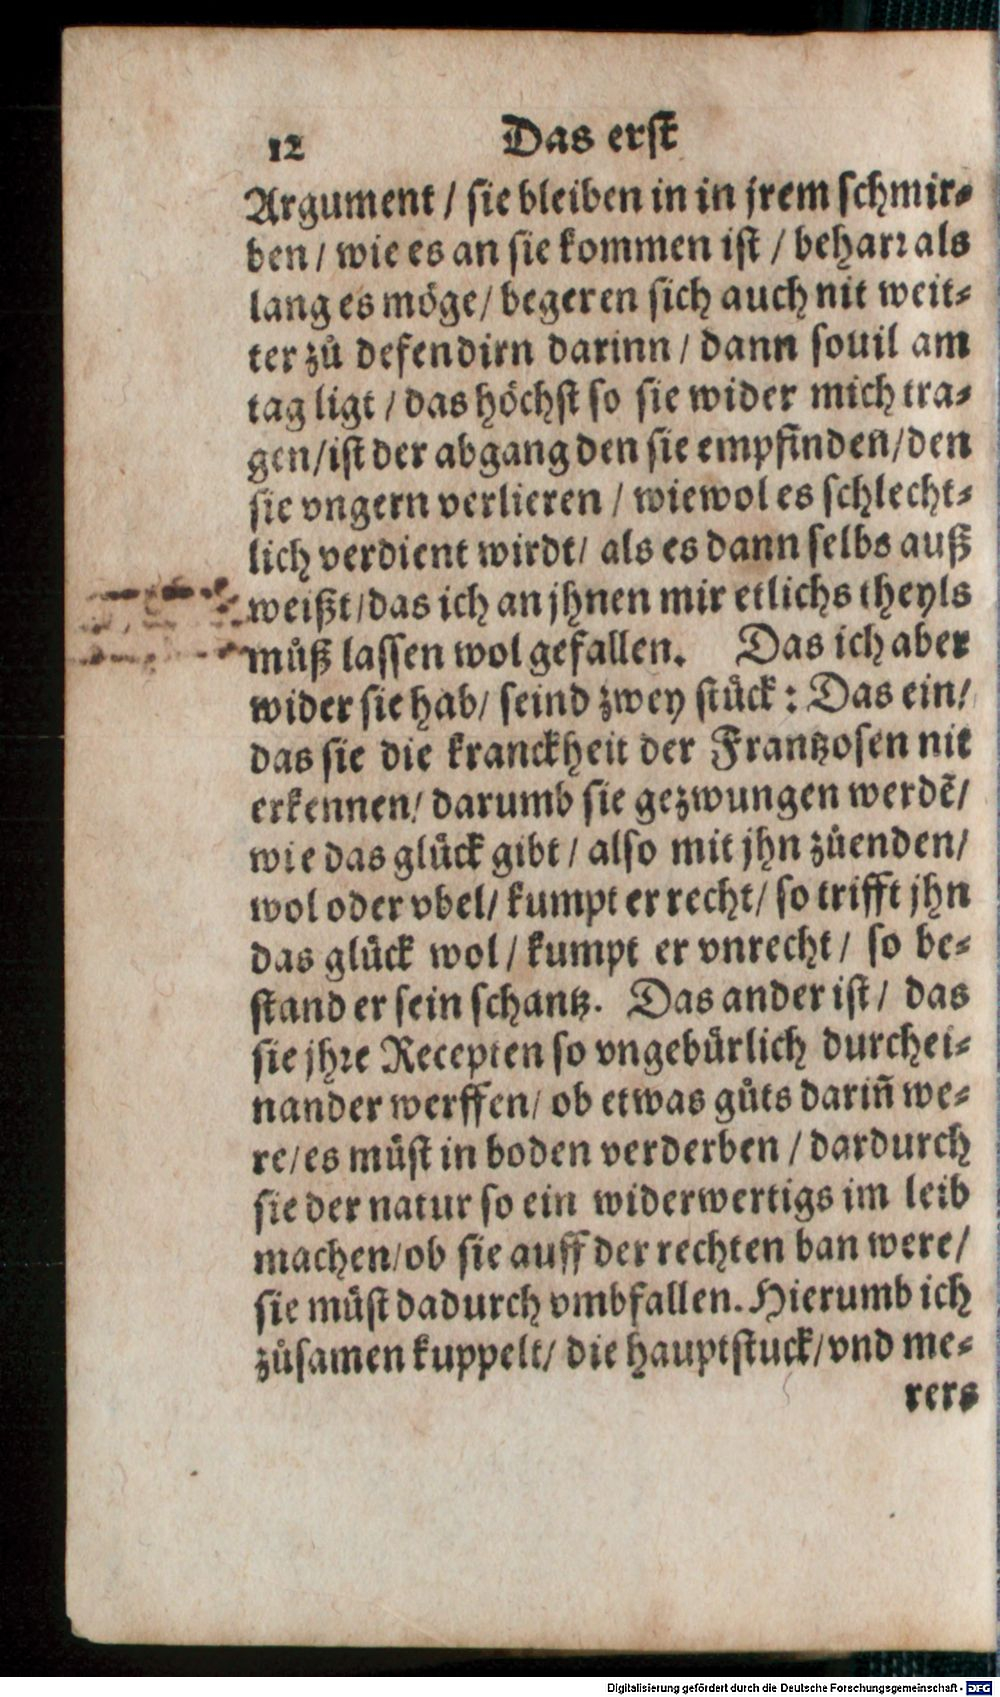 12 Das erst
Argument / sie bleiben in in jrem schmir⸗
ben / wie es an sie kommen ist / beharr als
lang es möge / begeren sich auch nit weit⸗
ter zů defendirn darinn / dann souil am
tag ligt / das höchst so sie wider mich tra⸗
gen / ist der abgang den sie empfinden / den
sie vngern verlieren / wiewol es schlecht⸗
lich verdient wirdt / als es dann selbs auß
weißt / das ich an jhnen mir etlichs theyls
můß lassen wol gefallen. Das ich aber
wider sie hab / seind zwey stück : Das ein /
das sie die kranckheit der Frantzosen nit
erkennen / darumb sie gezwungen werdẽ /
wie das glück gibt / also mit jhn zůenden /
wol oder vbel / kumpt er recht / so trifft jhn
das glück wol / kumpt er vnrecht / so be⸗
stand er sein schantz. Das ander ist / das
sie jhre Recepten so vngebürlich durchei⸗
nander werffen / ob etwas gůts dariñ we⸗
re / es müst in boden verderben / dardurch
sie der natur so ein widerwertigs im leib
machen / ob sie auff der rechten ban were /
sie müst dadurch vmbfallen. Hierumb ich
zůsamen kuppelt / die hauptstuck / vnd me⸗
rers
Digitalisierung gefördert durch die Deutsche Forschungsgemeinschaft - DFG